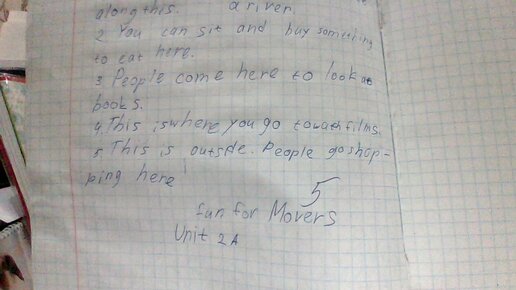 along this. a river.
2 You can sit and buy something
to eat here.
3 People come here to look at
books.
4. This is where you go to wath films.
5. This is outside. People go shop-
ping here
5
fun for Movers
Unit 2A